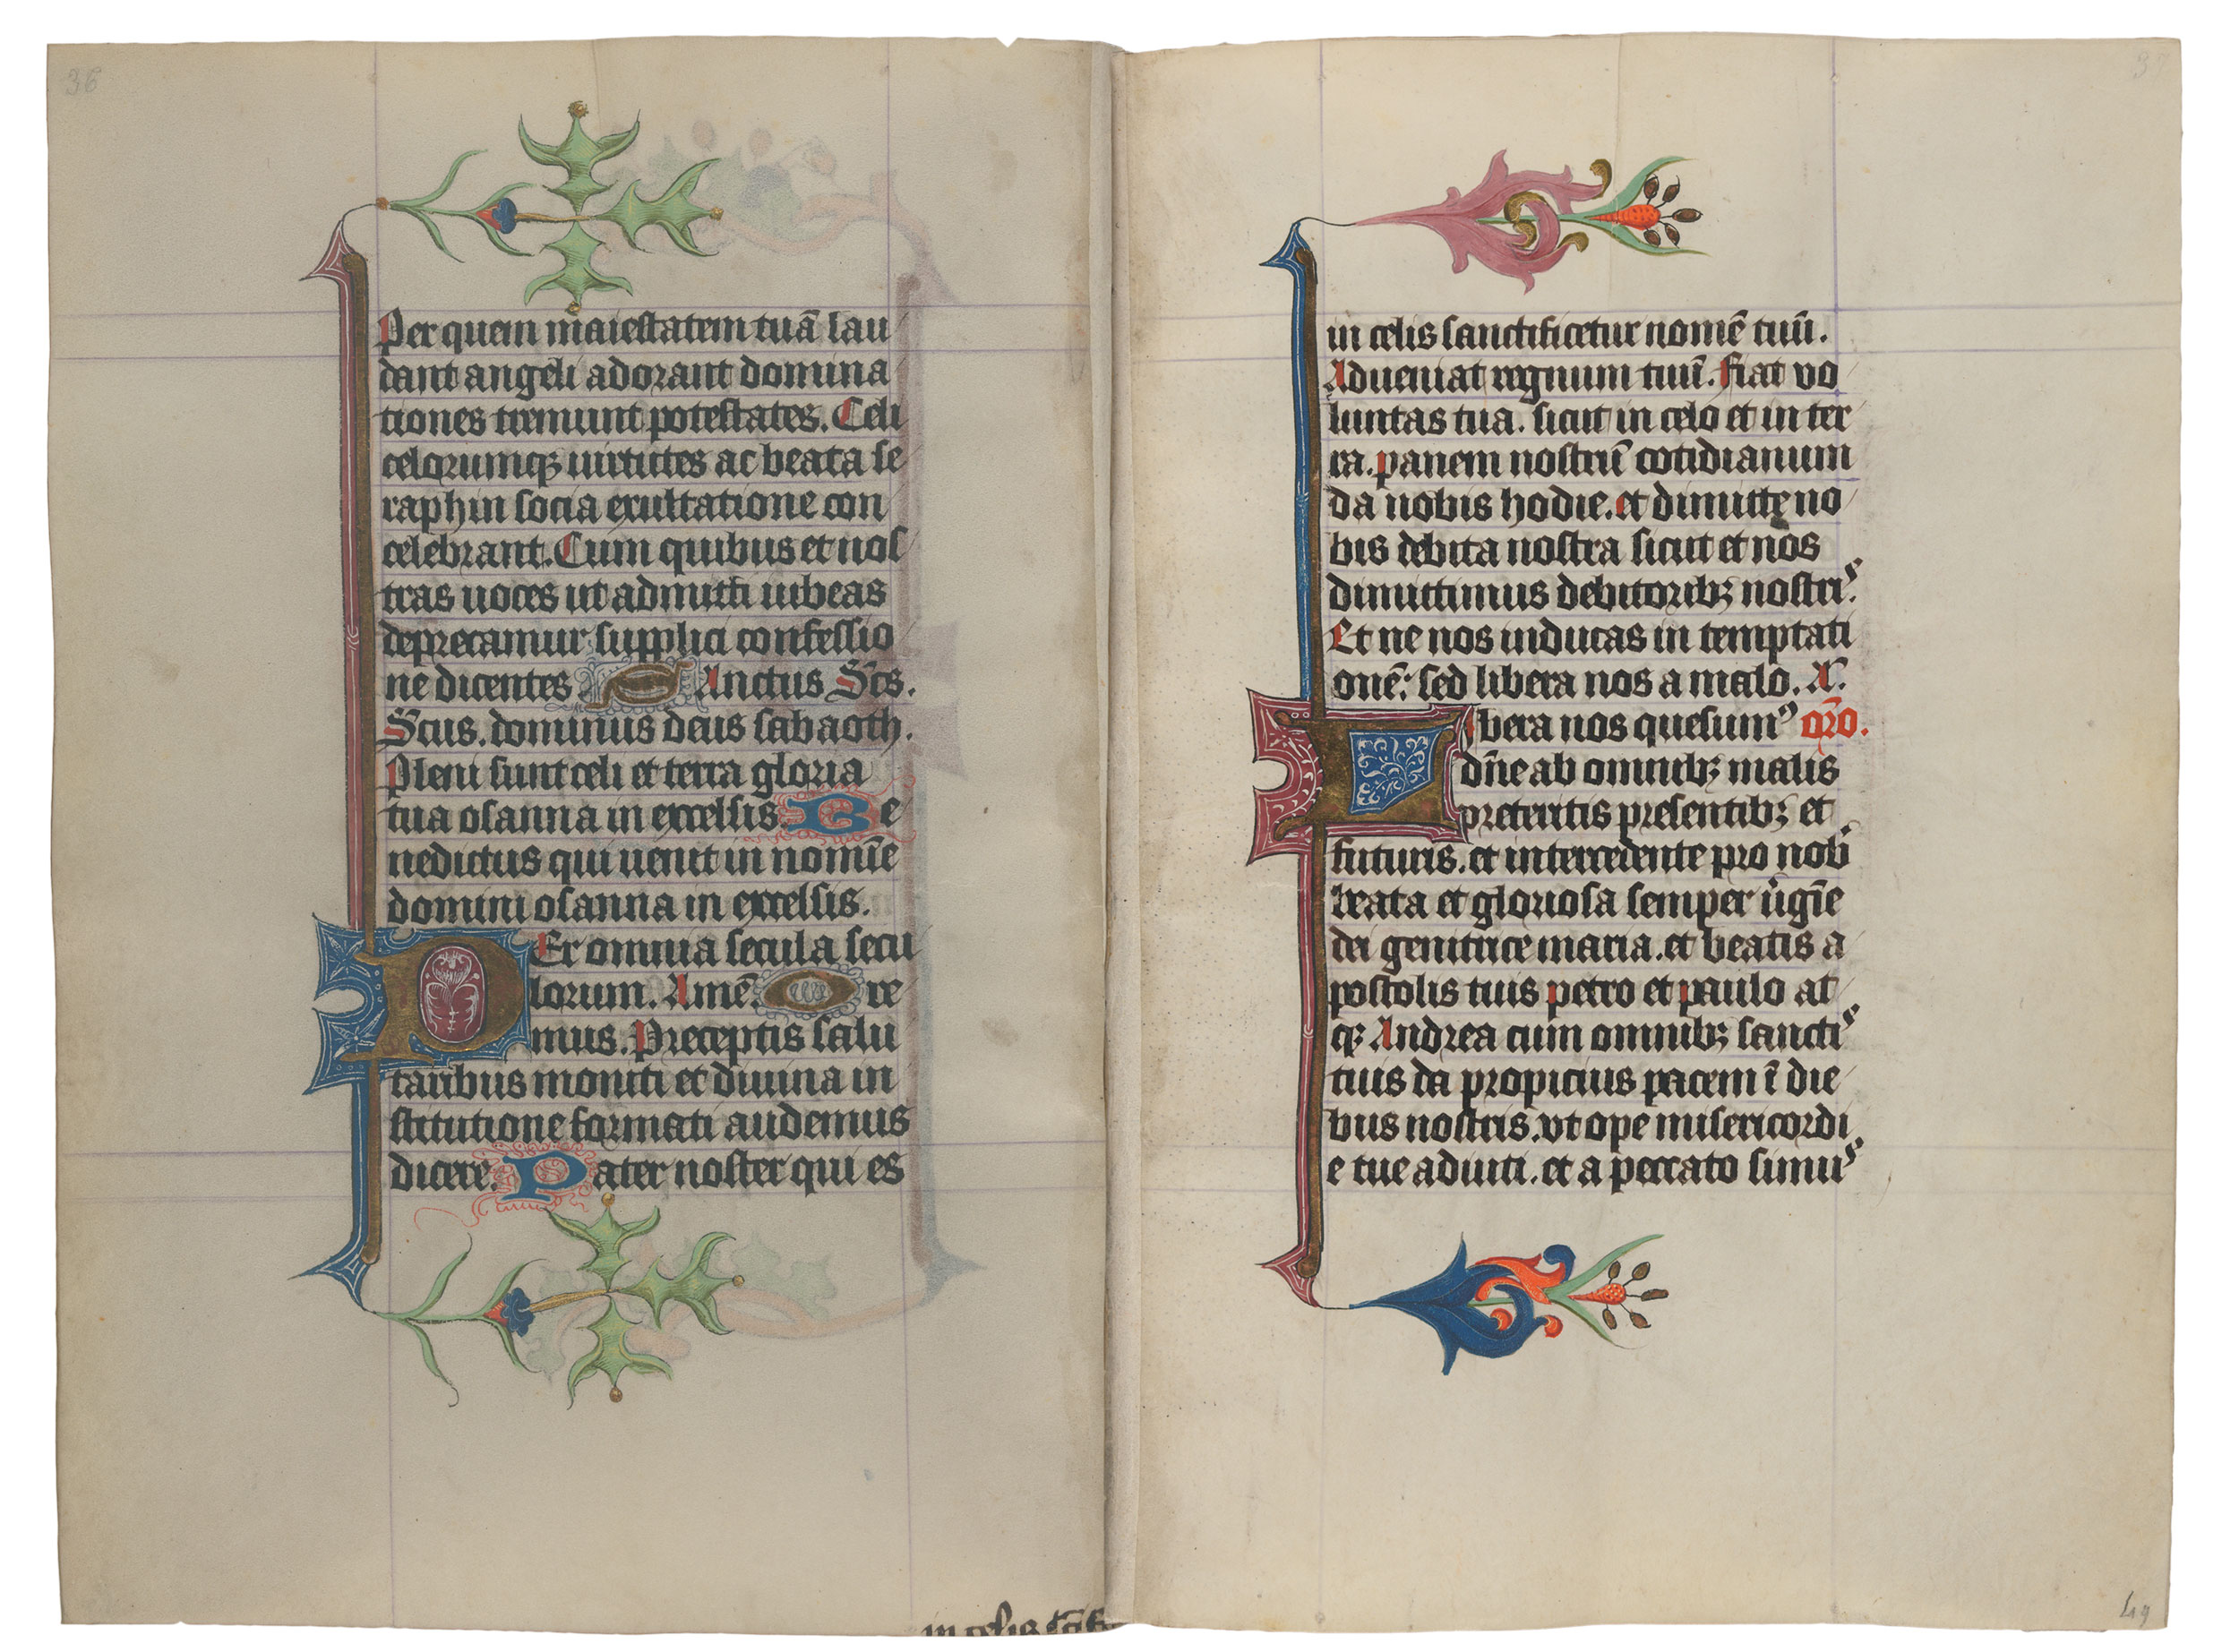 36
Per quem maiestatem tuā lau
dant angeli adorant domina
tiones tremunt potestates. Celi
celorumqꝫ uirtutes ac beata se
raphin socia exultatione con
celebrant. Cum quibus et nos
tras uoces ut admitti iubeas
deprecamur supplici confessio
ne dicentes SAnctus Sc̄s.
Sc̄us. dominus deus sabaoth.
Pleni sunt celi et terra gloria
tua osanna in excelsis Be
nedictus qui uenit in nomīe
domini osanna in excelsis.
PEr omnia secula secu
lorum. Amē. Ore
mus. Preceptis salu
taribus moniti et diuina in
stitutione formati audemus
dicere. Pater noster qui es
in celis
in celis sanctificetur nomē tuū.
Adueniat regnum tuū. fiat vo
luntas tua. sicut in celo et in ter
ra. panem nostrū cotidianum
da nobis hodie. et dimitte no
bis debita nostra sicut et nos
dimittimus debitoribꝫ nostriˢ.
Et ne nos inducas in temptati
onē: sed libera nos a malo. A.
Libera nos quesumꝰ or̄o.
dn̄e ab omnibꝫ malis
preteritis presentibꝫ et
futuris. et intercedente pro nob̾
beata et gloriosa semper uͥgīe
dei genitrice maria. et beatis a
postolis tuis petro et paulo at
qꝫ Andrea cum omnibꝫ sanctiˢ
tuis da propicius pacem ī die
bus nostris. vt ope misericordi
e tue adiuti. et a peccato simuˢ
49